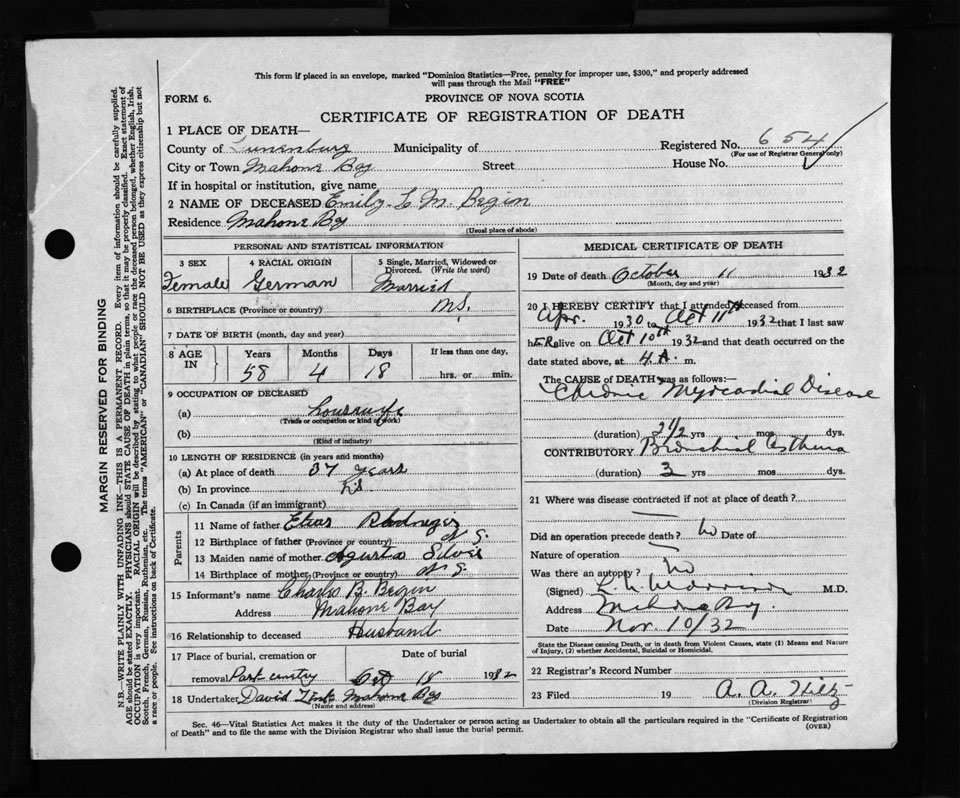 This form if placed in an envelope, marked "Dominion Statistics—Free, penalty for improper use, $300," and properly addressed
will pass through the Mail "FREE"
FORM 6.
PROVINCE OF NOVA SCOTIA
CERTIFICATE OF REGISTRATION OF DEATH
1 PLACE OF DEATH—
Registered No. 654
(For use of Registrar General only)
County of Lunenburg Municipality of
City or Town Mahone Bay Street House No.
If in hospital or institution, give name
2 NAME OF DECEASED Emily L. M. Begin
Residence Mahone Bay
(Usual place of abode)
PERSONAL AND STATISTICAL INFORMATION
3 SEX
Female
4 RACIAL ORIGIN
German
5 Single, Married, Widowed or
Divorced. (Write the word)
Married
6 BIRTHPLACE (Province or country) N.S.
7 DATE OF BIRTH (month, day and year)
8 AGE IN
Years Months Days If less than one day,
58 4 18 hrs. or min.
9 OCCUPATION OF DECEASED
(a) housewife
(Trade or occupation or kind of work)
(b)
(Kind of industry)
10 LENGTH OF RESIDENCE (in years and months)
(a) At place of death 37 years
(b) In province
(c) In Canada (if an immigrant)
Parents
11 Name of father
12 Birthplace of father (Province or country) N S.
13 Maiden name of mother Agusta Silver
14 Birthplace of mother (Province or country) N S.
15 Informant's name Charles B. Begin
Address Mahone Bay
16 Relationship to deceased Husband
17 Place of burial, cremation or Date of burial
removal Park cemetry Oct 18 1932
18 Undertaker David Mahone Bay
(Name and address)
MEDICAL CERTIFICATE OF DEATH
19 Date of death October 11 1932
(Month, day and year)
20 I HEREBY CERTIFY that I attended deceased from
Apr. 1930 to Oct 11th 1932 that I last saw
hER alive on Oct 10th 1932 and that death occurred on the
date stated above, at 4 A. m.
The CAUSE of DEATH was as follows:—
Chronic Myocardial Disease
(duration) 2 1/2 yrs mos. dys.
CONTRIBUTORY Bronchial Asthma
(duration) 3 yrs mos. dys.
21 Where was disease contracted if not at place of death?
Did an operation precede death? No Date of
Nature of operation
Was there an autopsy? No
(Signed) M.D.
Address Mahone Bay.
Date Nov. 10/32
State the Disease causing Death, or in death from Violent Causes, state (1) Means and Nature
of Injury, (2) whether Accidental, Suicidal or Homicidal.
22 Registrar's Record Number
23 Filed 19 A. A.
(Division Registrar)
Sec. 46—Vital Statistics Act makes it the duty of the Undertaker or person acting as Undertaker to obtain all the particulars required in the "Certificate of Registration
of Death" and to file the same with the Division Registrar who shall issue the burial permit. (OVER)
MARGIN RESERVED FOR BINDING
N.B.—WRITE PLAINLY WITH UNFADING INK—THIS IS A PERMANENT RECORD. Every item of information should be carefully supplied.
AGE should be stated EXACTLY. PHYSICIANS should STATE CAUSE OF DEATH in plain terms, so that it may be properly classified. Exact statement of
OCCUPATION is very important. RACIAL ORIGIN will be described by stating to what people or race the deceased person belonged, whether English, Irish,
Scotch, French, German, Russian, Ruthenian, etc. The terms "AMERICAN" or "CANADIAN" SHOULD NOT BE USED as they express citizenship but not
a race or people. See instructions on back of Certificate.